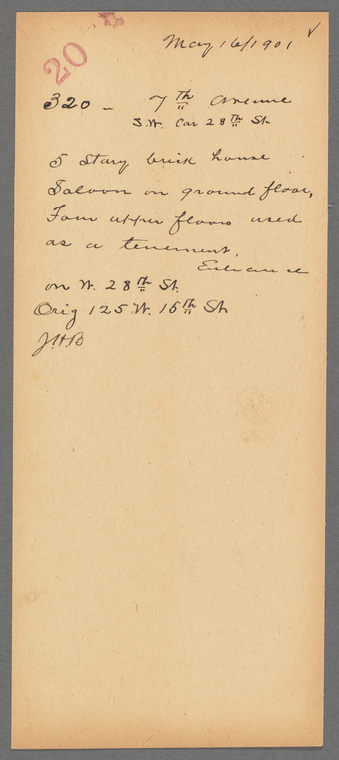 20
May 16/1901 ✓
320 - 7th Avenue
S.W. Cor 28th St.
5 story brick house
Saloon on ground floor,
Four upper floors used
as a tenement.
Entrance
on W. 28th St.
Orig 125 W. 15th St
J.H.B